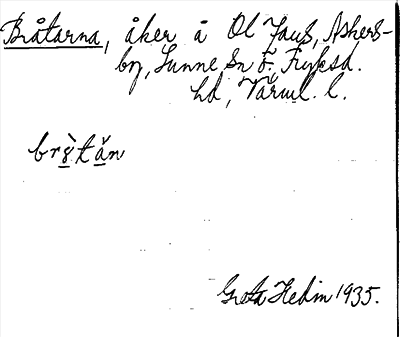 Bråtarna, åker å Ol Jans, Askers-
by, Sunne sn Ö. Fryksd.
hd, Värml. l.
bròtăn
Greta Hedin 1935.